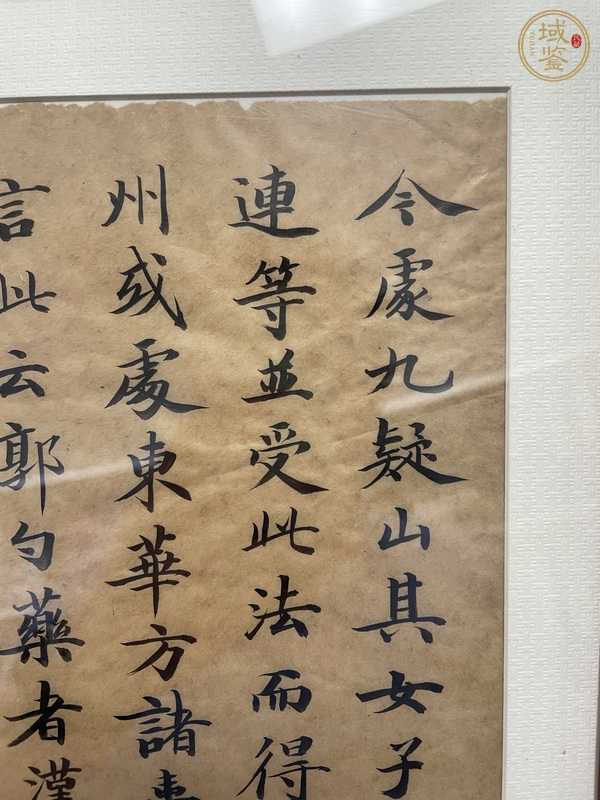 今處九疑山其女子
連等並受此法而得
州或處東華方諸臺
言此云郭勺藥者漢
域鉴